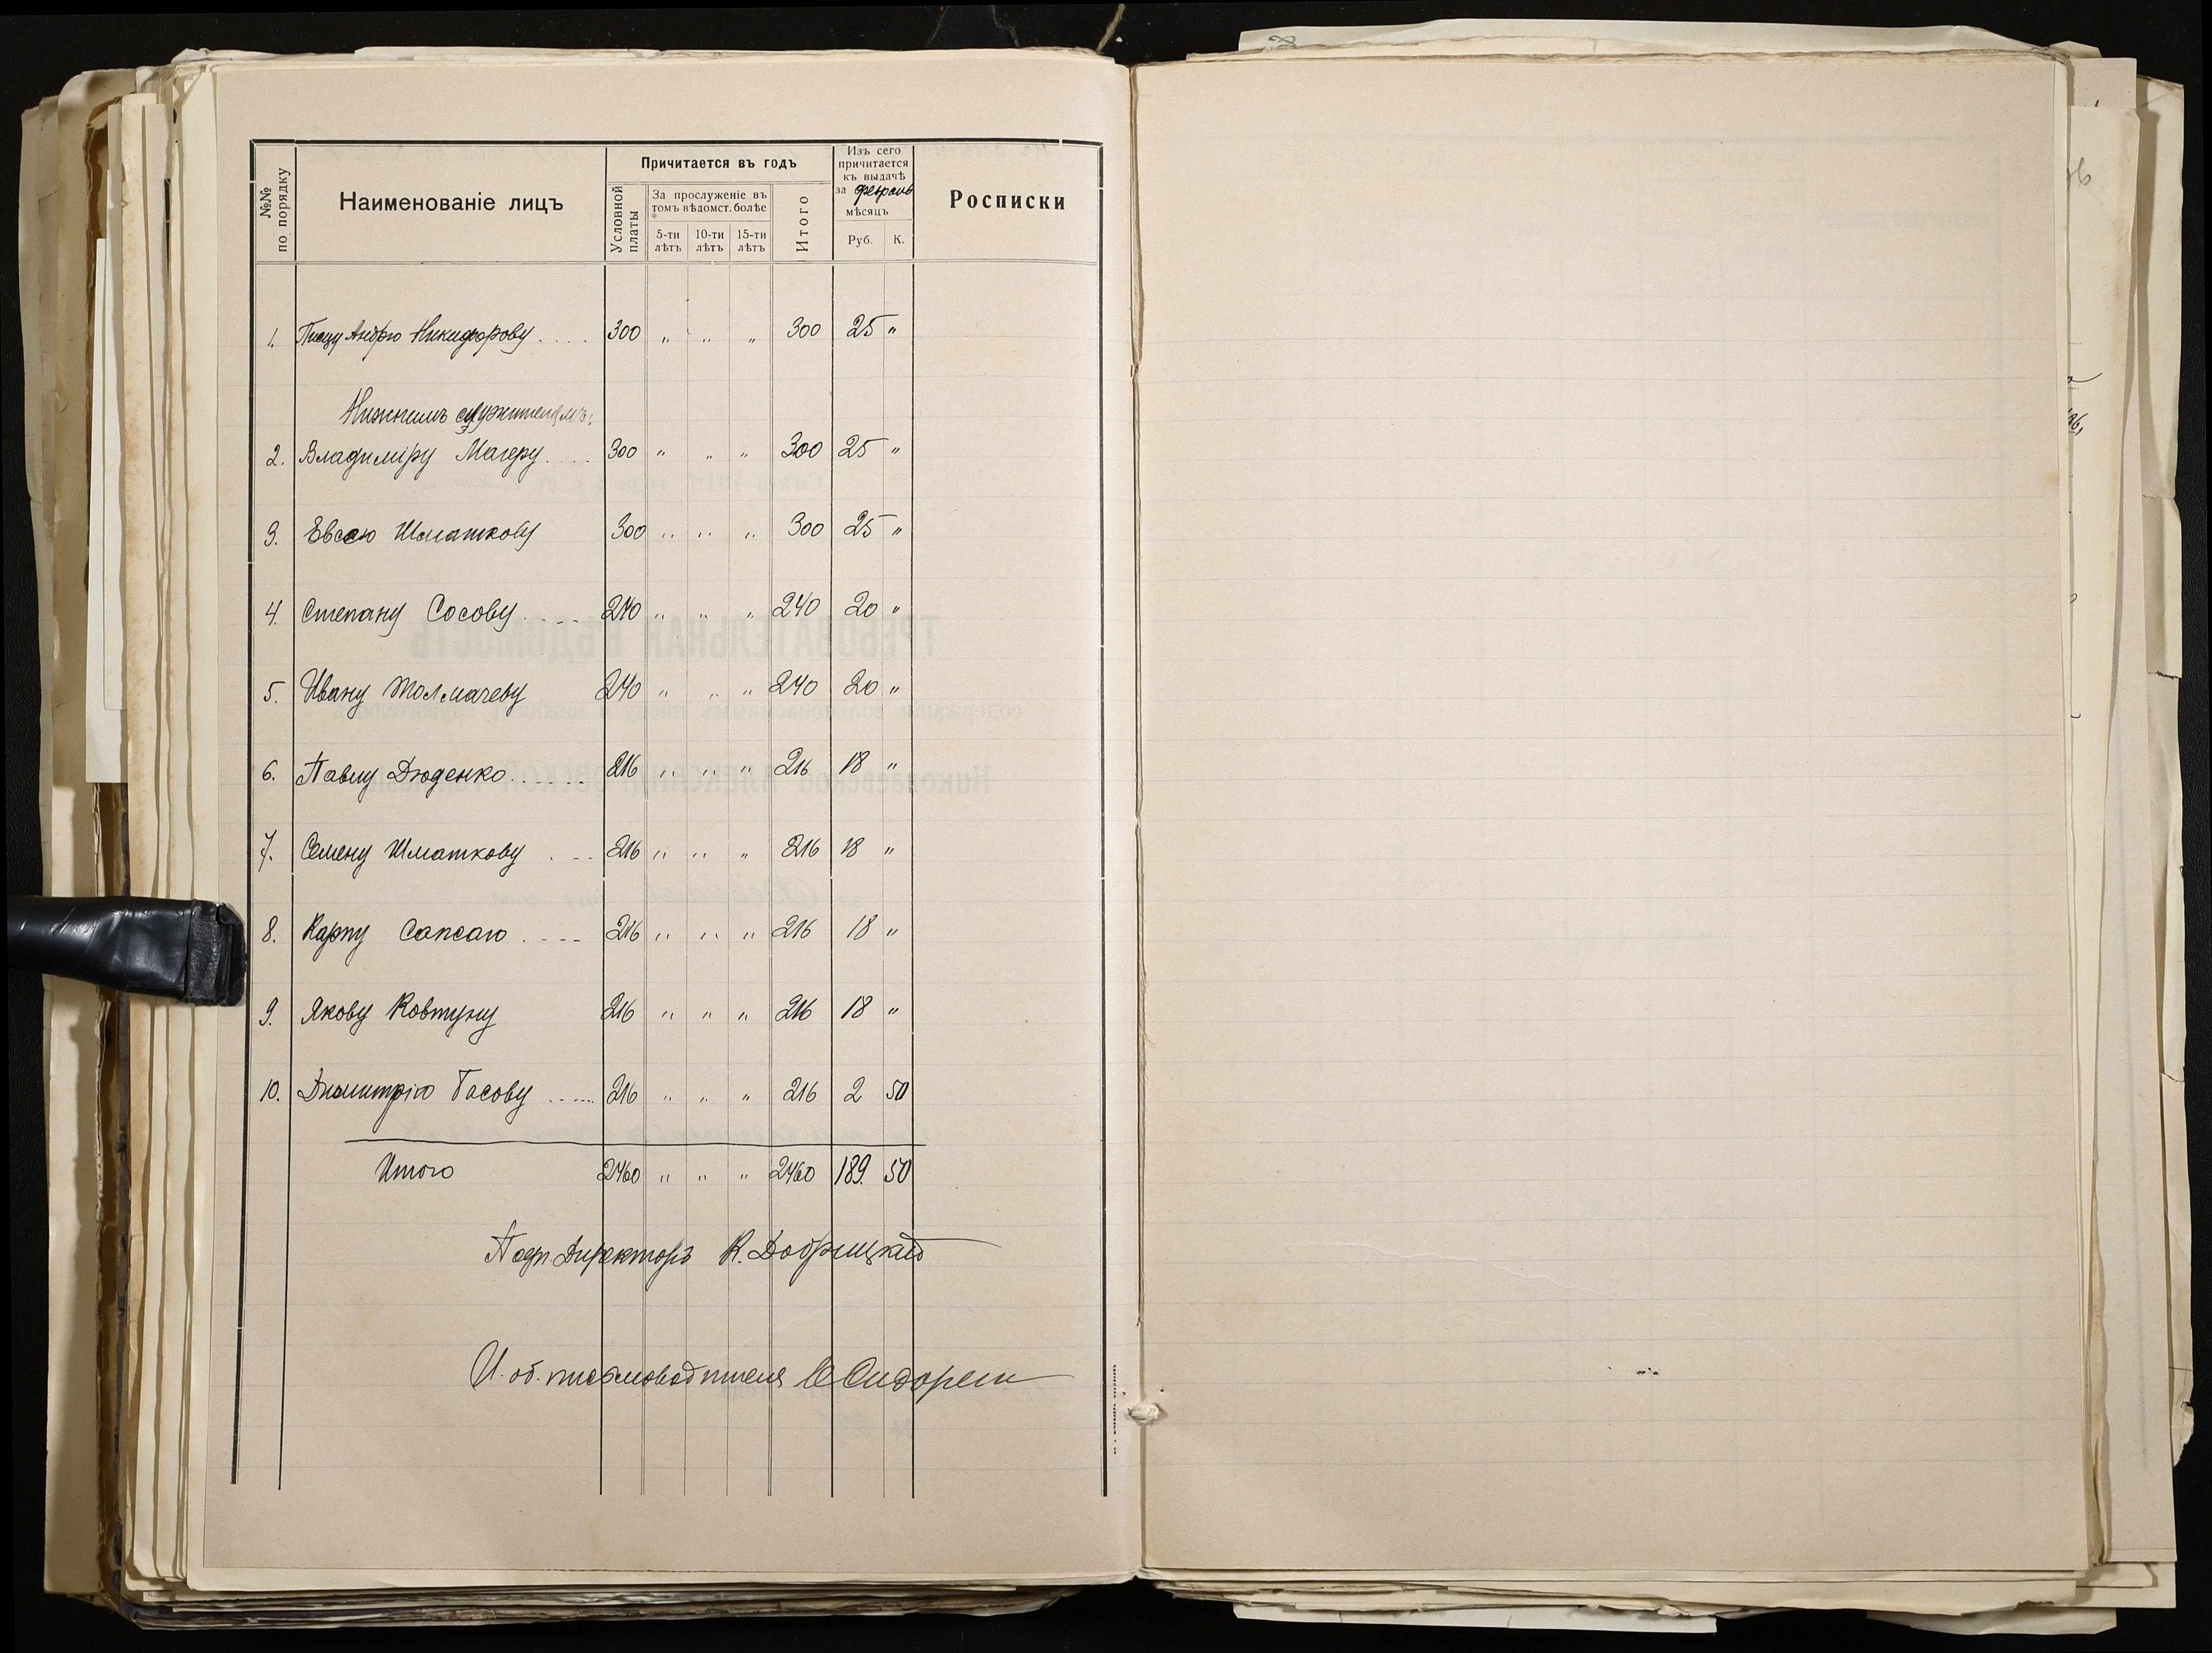 №№ по порядку
Наименованіе лицъ
Причитается въ годъ
Условной платы
За прослуженіе въ томъ вѣдомст. болѣе
5-ти лѣтъ
10-ти лѣтъ
15-ти лѣтъ
Итого
Изъ сего причитается къ выдачѣ за февраль мѣсяцъ
Руб. К.
Росписки
1. Писцу Андрею Никифорову .... 300 " " " 300 25 "
Нижнимъ служителямъ:
2. Владиміру Магеру .... 300 " " " 300 25 "
3. Евсею Шматкову 300 " " " 300 25 "
4. Степану Сосову .... 240 " " " 240 20 "
5. Ивану Толмачеву 240 " " " 240 20 "
6. Павлу Дюденко ...... 216 " " " 216 18 "
7. Семену Шматкову ... 216 " " " 216 18 "
8. Карпу Сапсаю .... 216 " " " 216 18 "
9. Якову Ковтуну 216 " " " 216 18 "
10. Димитрію Басову ..... 216 " " " 216 2 50
Итого 2460 " " " 2460 189. 50
Подп. Директоръ К. Добрицкій
И. об. письмоводителя